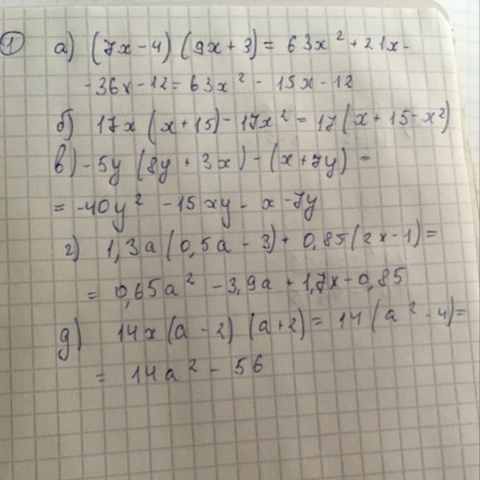 1 а) (7x-4)(9x+3) = 63x² + 21x -
-36x-12 = 63x² - 15x - 12
б) 17x(x+15)-17x² = 17(x+15-x²)
в) -5y(8y+3x)-(x+7y) =
= -40y² -15xy - x -7y
г) 1,3a(0,5a-3)+0,85(2x-1) =
= 0,65a² - 3,9a + 1,7x - 0,85
д) 14x(a-2)(a+2) = 14(a²-4) =
= 14a² - 56